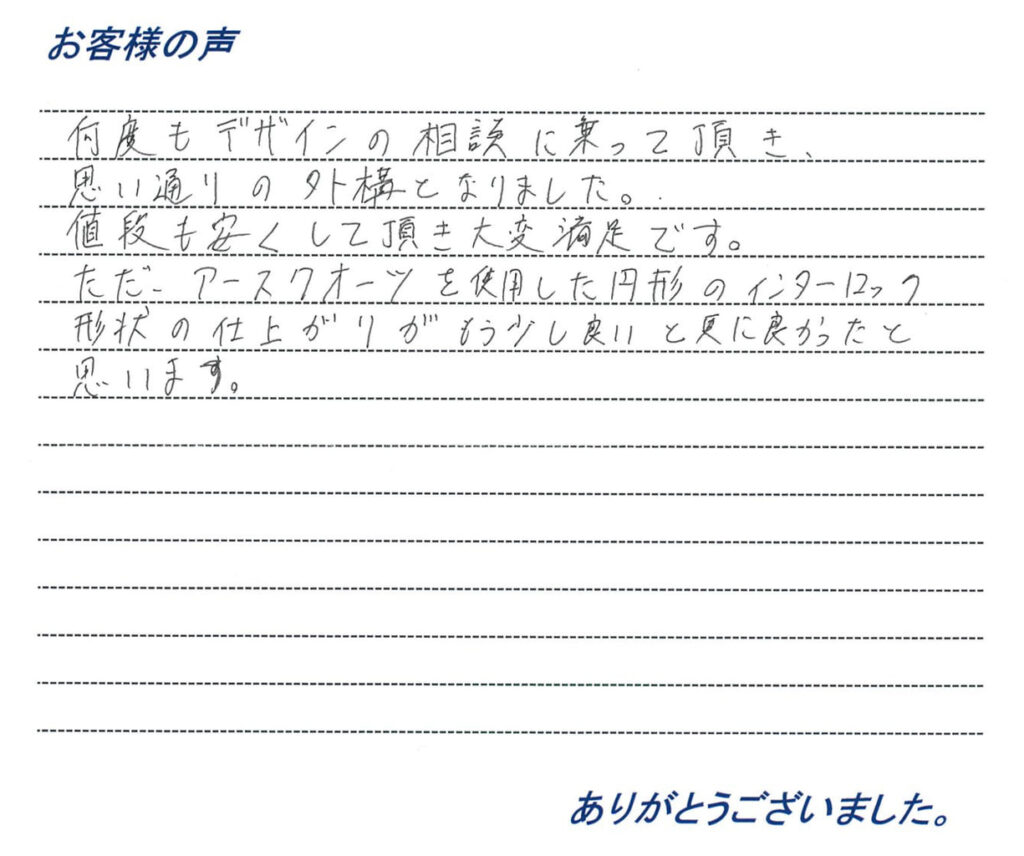 お客様の声
何度もデザインの相談に乗って頂き、
思い通りの外構となりました。
値段も安くして頂き大変満足です。
ただ、アースクオーツを使用した円形のインターロック
形状の仕上がりがもう少し良いと更に良かったと
思います。
ありがとうございました。